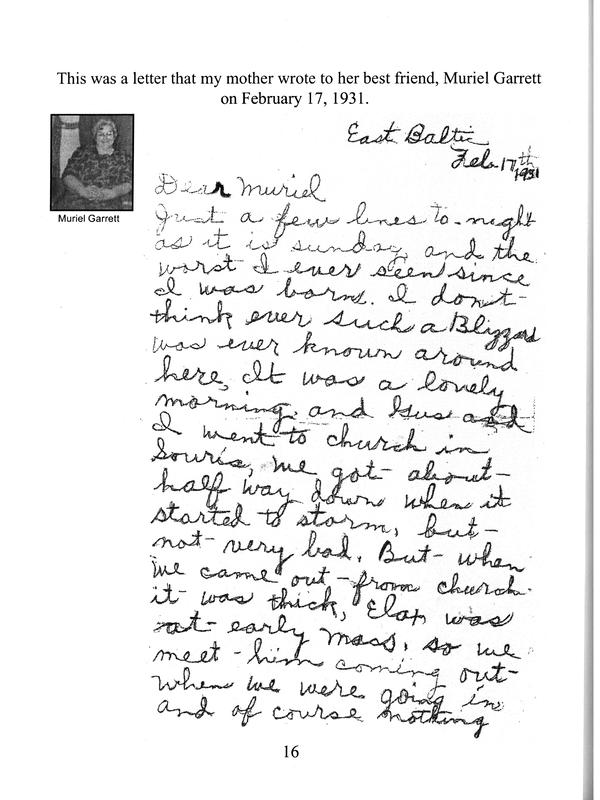 This was a letter that my mother wrote to her best friend, Muriel Garrett
on February 17, 1931.
Muriel Garrett
East Baltic
Feb 17th
1931
Dear Muriel
Just a few lines to-night
as it is sunday, and the
worst I ever seen since
I was born. I don't
think ever such a Blizzard
was ever known around
here, It was a lovely
morning, and Gus and
I went to church in
Souris, we got about
half way down when it
started to storm, but
not very bad. But when
we came out from church
it was thick, was
at early mass, so we
meet him coming out
when we were going in
and of course nothing
16